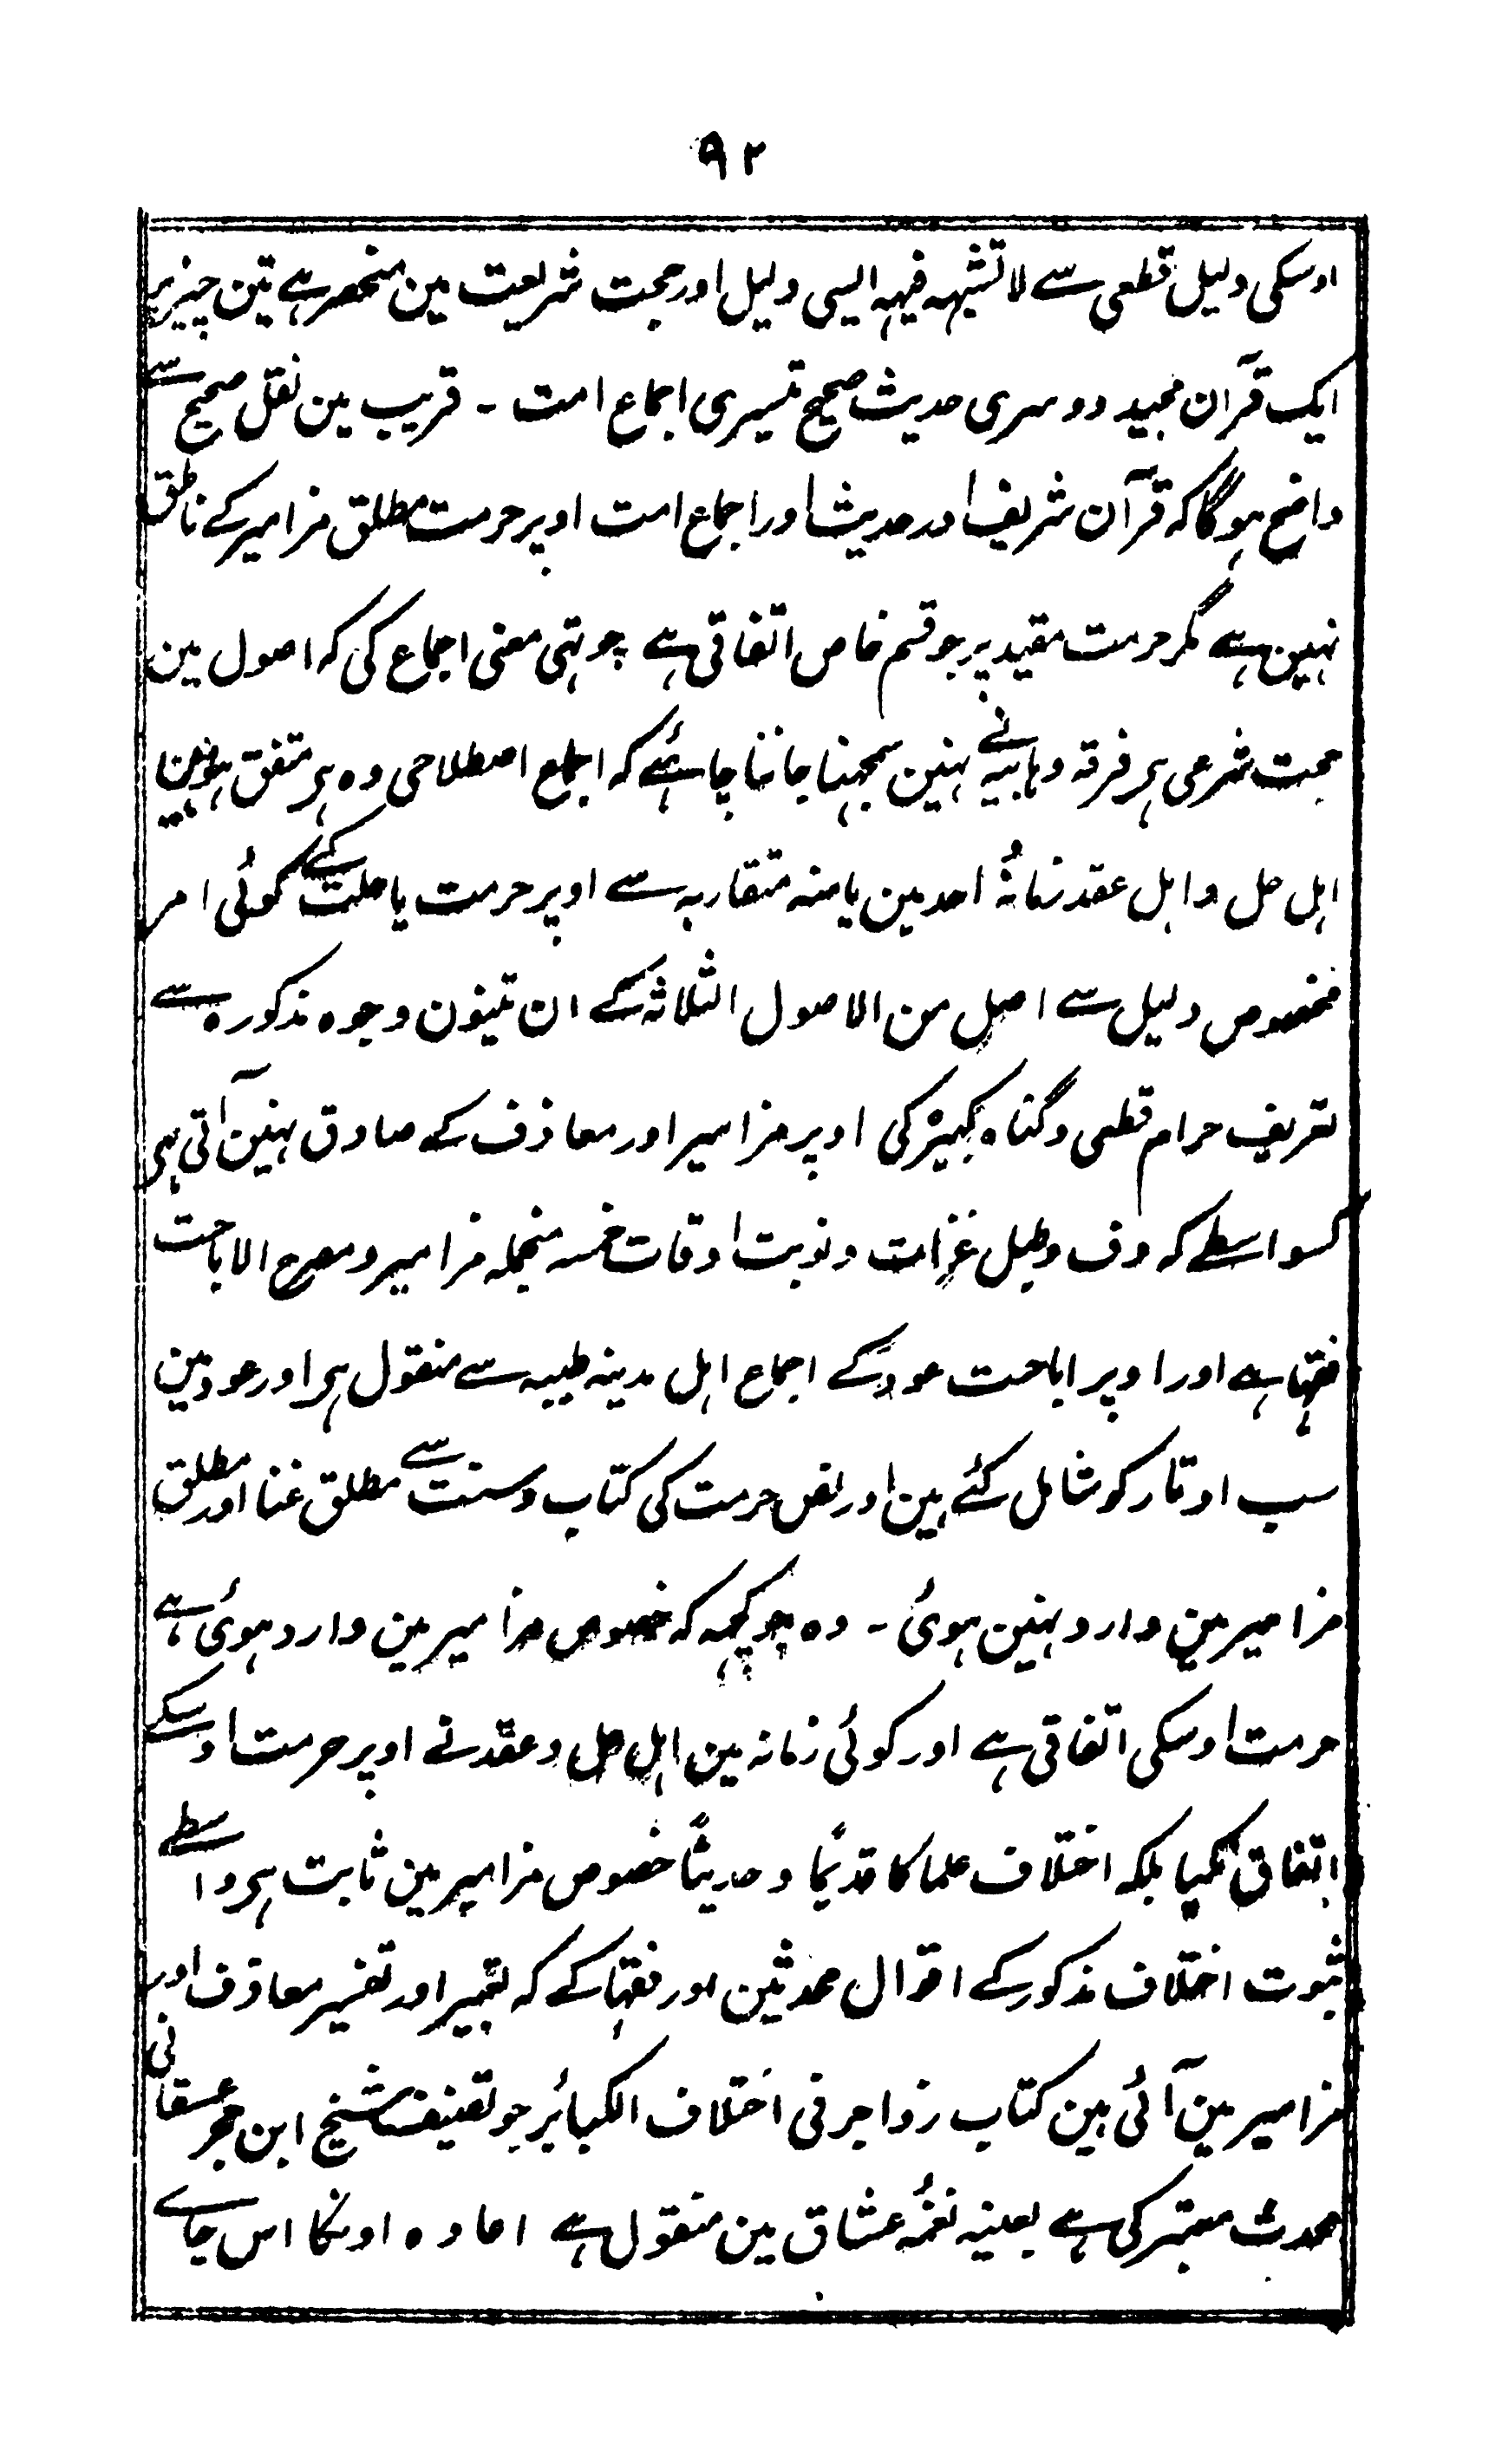 ۹۲
اوسکی دلیل قطعی سے لا تشبہہ فیہہ ایسی دلیل اور حجت شریعت مین منحصر ہے تین چیز پر
ایک قرآن مجید دوسری حدیث صحیح تیسری اجماع امت ۔ قریب مین نقل صحیح سے
واضح ہوگا کہ قرآن شریف اور حدیث اور اجماع امت اوپر حرمت مطلق مزامیر کے ناطق
نہین ہے مگر حرمت مقید پر جو قسم خاص اتفاقی ہے چوتہی معنی اجماع کی کہ اصول مین
حجت شرعی ہی فرقہ وہابیہ نے نہین سمجہنا جاننا چاہئے کہ اجماع اصطلاحی وہ ہی متفق ہووین
اہل حل و اہل عقد زمانۂ احد مین یا منہ متقاربہ سے اوپر حرمت یا حلت کے کوئی امر
مخصوص دلیل سے اصل من الاصول الثلاثہ کے ان تینون وجوہ مذکورہ سے
تعریف حرام قطعی و گناہ کبیرہ کی اوپر مزامیر اور معازف کے صادق نہین آتی ہی
کسواسطے کہ دف و طبل غزات و نوبت اوقات خمسہ منجملہ مزامیر و مصرح الاباحت
فقہا ہے اور اوپر اباحت عود کے اجماع اہل مدینہ طیبہ سے منقول ہی اور عود مین
سب اوتار کو شامل کئے ہین اور نص حرمت کی کتاب و سنت سے مطلق غنا اور مطلق
مزامیر مین وارد نہین ہوئی ۔ وہ جو کچہہ کہ خصوص مزامیر مین وارد ہوئی ہے
حرمت اوسکی اتفاقی ہے اور کوئی زمانہ مین اہل حل و عقد نے اوپر حرمت اوسکے
اتفاق نکیا بلکہ اختلاف علما کا قدیمًا و حدیثًا خصوص مزامیر مین ثابت ہی واسطے
ثبوت اختلاف مذکور کے اقوال محدثین اور فقہا کے کہ تعبیر اور تفسیر معازف اور
مزامیر مین آئی ہین کتاب زواجر فی اختلاف الکبائر جو تصنیف شیخ ابن حجر عسقلانی
محدث معتبر کی ہے بعینہ نغمۂ عشاق مین منقول ہے اعادہ اونکا اس جاے